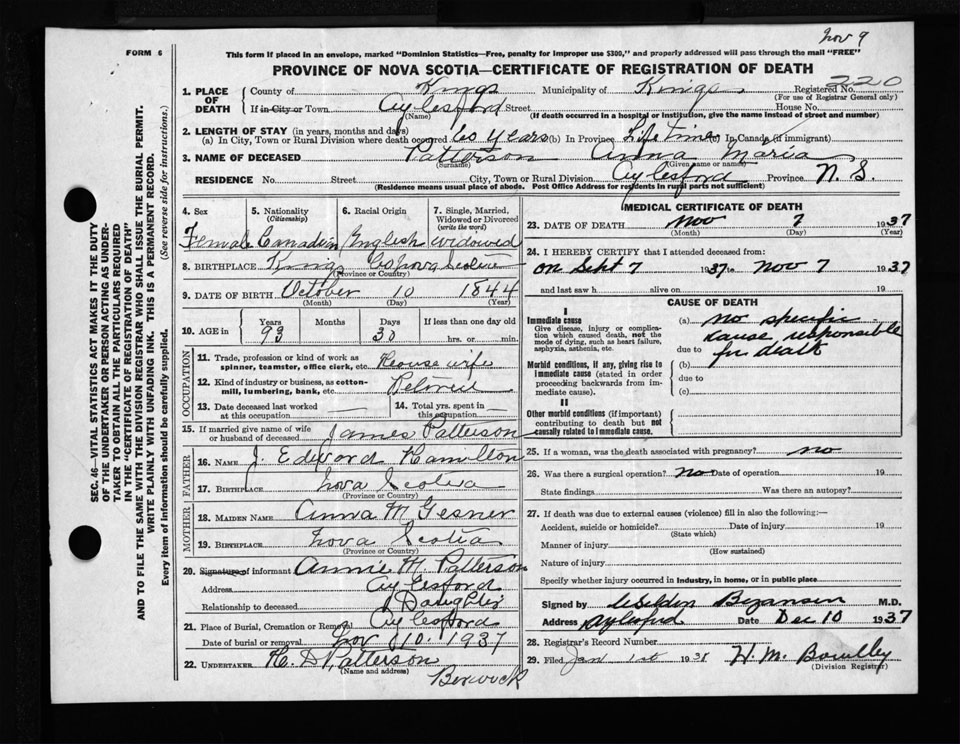 Nov 9
FORM 6
This form if placed in an envelope, marked "Dominion Statistics—Free, penalty for improper use $300," and properly addressed will pass through the mail "FREE"
PROVINCE OF NOVA SCOTIA—CERTIFICATE OF REGISTRATION OF DEATH
SEC. 46—VITAL STATISTICS ACT MAKES IT THE DUTY
OF THE UNDERTAKER OR PERSON ACTING AS UNDER-
TAKER TO OBTAIN ALL THE PARTICULARS REQUIRED
IN THE "CERTIFICATE OF REGISTRATION OF DEATH"
AND TO FILE THE SAME WITH THE DIVISION REGISTRAR WHO SHALL ISSUE THE BURIAL PERMIT.
WRITE PLAINLY WITH UNFADING INK. THIS IS A PERMANENT RECORD.
Every item of information should be carefully supplied. (See reverse side for instructions.)
1. PLACE OF DEATH County of Kings Municipality of Kings Registered No. 220
(For use of Registrar General only)
If in City or Town Aylesford Street House No.
(Name) (If death occurred in a hospital or institution, give the name instead of street and number)
2. LENGTH OF STAY (in years, months and days)
(a) In City, Town or Rural Division where death occurred 60 years (b) In Province Life Time (c) In Canada (if immigrant)
3. NAME OF DECEASED Patterson Anna Maria
(Surname) (Given name or names)
RESIDENCE No. Street City, Town or Rural Division Aylesford Province N. S.
(Residence means usual place of abode. Post Office Address for residents in rural parts not sufficient)
4. Sex 5. Nationality (Citizenship) 6. Racial Origin 7. Single, Married, Widowed or Divorced (write the word)
Female Canadian English widowed
8. BIRTHPLACE Kings Co Nova Scotia
(Province or Country)
9. DATE OF BIRTH October 10 1844
(Month) (Day) (Year)
10. AGE in Years Months Days If less than one day old
93 30 hrs. or min.
OCCUPATION
11. Trade, profession or kind of work as
spinner, teamster, office clerk, etc. House wife
12. Kind of industry or business, as cotton-
mill, lumbering, bank, etc.
13. Date deceased last worked at this occupation — 14. Total yrs. spent in this occupation —
15. If married give name of wife
or husband of deceased James Patterson
FATHER
16. NAME J. Edward Hamilton
17. BIRTHPLACE Nova Scotia
(Province or Country)
MOTHER
18. MAIDEN NAME Anna M Gesner
19. BIRTHPLACE Nova Scotia
(Province or Country)
20. Signature of informant Annie M. Patterson
Address Aylesford
Relationship to deceased Daughter
21. Place of Burial, Cremation or Removal Aylesford
Date of burial or removal Nov 10. 1937
22. UNDERTAKER H. D Patterson
(Name and address)
Berwick
MEDICAL CERTIFICATE OF DEATH
23. DATE OF DEATH Nov 7 1937
(Month) (Day) (Year)
24. I HEREBY CERTIFY that I attended deceased from:
on Sept 7 1937 to Nov 7 1937
and last saw h alive on 19
CAUSE OF DEATH
I
Immediate cause
Give disease, injury or complica-
tion which caused death, not the
mode of dying, such as heart failure,
asphyxia, asthenia, etc.
(a) no specific
cause responsible
due to for death
Morbid conditions, if any, giving rise to
immediate cause (stated in order
proceeding backwards from im-
mediate cause).
(b)
due to
(c)
II
Other morbid conditions (if important)
contributing to death but not
causally related to immediate cause.
25. If a woman, was the death associated with pregnancy? no
26. Was there a surgical operation? No Date of operation 19
State findings Was there an autopsy?
27. If death was due to external causes (violence) fill in also the following:—
Accident, suicide or homicide? Date of injury 19
(State which)
Manner of injury
(How sustained)
Nature of injury
Specify whether injury occurred in industry, in home, or in public place
Signed by Bezanson M.D.
Address Aylesford Date Dec 10 1937
28. Registrar's Record Number
29. Filed Jan 1st 1938 H. M.
(Division Registrar)